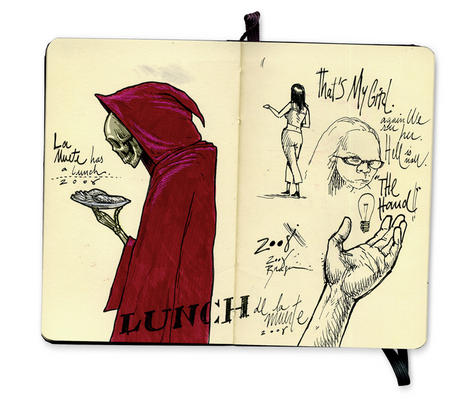 La
Muete has
a Lunch
2008
LUNCH
de la
muerte
2008
That's My Girl.
again We
see her.
Hell is
now.
"The
Hand"
2008
2008